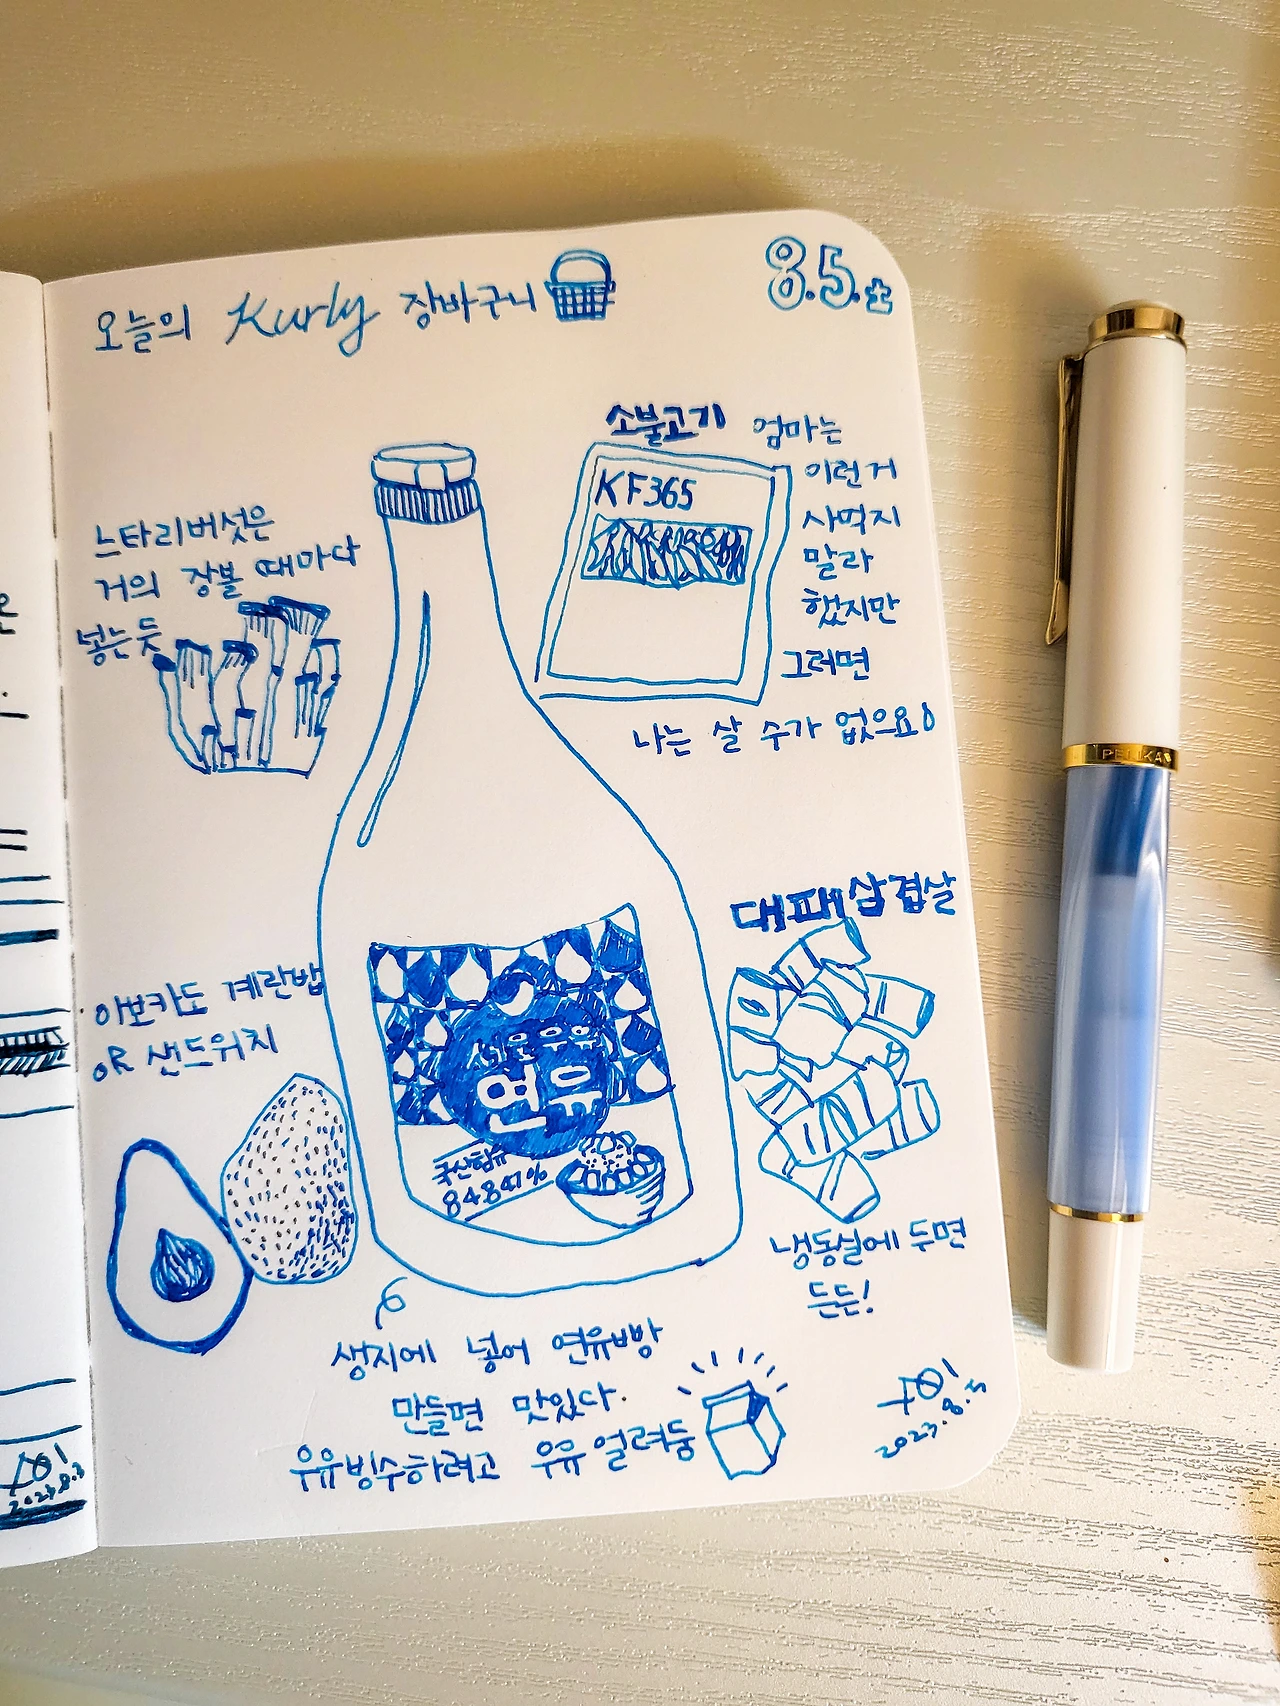 오늘의 Kurly 장바구니
8.5.土
소불고기
KF365
엄마는
이런거
사먹지
말라
했지만
그러면
나는 살 수가 없으요!
느타리버섯은
거의 장볼 때마다
넣는듯
대패삼겹살
냉동실에 두면
든든!
아보카도 계란밥
OR 샌드위치
연유
국산함유
84.847%
생지에 넣어 연유빵
만들면 맛있다.
우유빙수하려고 우유 얼려둠
2023.8.5
2023.8.3
PELIKAN